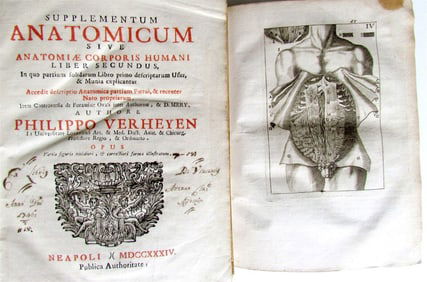 SUPPLEMENTUM
ANATOMICUM
SIVE
ANATOMIÆ CORPORIS HUMANI
LIBER SECUNDUS,
In quo partium solidarum Libro primo descriptarum Usus,
& Munia explicantur
Accedit descriptio Anatomica partium Fœtui, & recenter
Nato propriarum,
Item Controversia de Foramine Ovali inter Authorem, & D. MERY,
AUTHORE
PHILIPPO VERHEYEN
In Universitate Lovaniensi Art. & Med. Doct. Anat. & Chirurg.
Professore Regio, & Ordinario.
OPUS
Variis figuris nitidius, & correctius formis illustratum.
NEAPOLI MDCCXXXIV.
Publica Authoritate.
IV